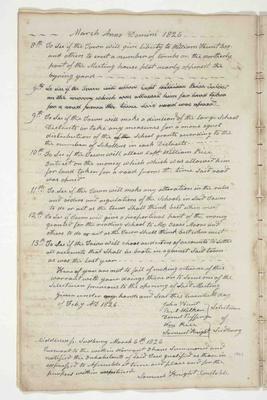 March Anno Domini 1826
8th To See if the Town will give liberty to William Hunt Esq
and others to erect a number of tombs on the northerly
part of the Meeting house plat nearly opposite the
burying yard
9th To See if the Town will allow Capt William Rice interest
on the money which was allowed him for land taken
for a road from the time said road was opened
9th To See if the Town will make a division of the large School
Districts or take any measures for a more equal
distribution of the School money according to the
number of Scholars in each District
10th To See if the Town will allow Capt William Rice
interest on the money which was allowed him
for land taken for a road from the time said road
was opened
11th To See if the Town will make any alteration in the rules
and orders and regulations of the Schools in said Town
to do or act as the Town shall think best
12th To See if Town will give a proportional part of the money
granted for the
others to do or act as the Town shall think best
13th To See if the Town will choose auditors of accounts to settle
all accounts that shall be brought in against said town
as was the last year
Hereof you are not to fail of making return of this
warrant with your doings thereon to Some one of the
Selectmen previous to the opening of Said Meeting
Given under our hands and Seal this
of Feby AD 1826
Selectmen
of
Sudbury
Middlesex Ss Sudbury March 6th 1826
Pursuant to the within Warrant I have Summoned and
notified the Inhabitants of said Town qualified as therein
expressed to Assemble at time and place and for the
purpose within
Samuel Knight Constable